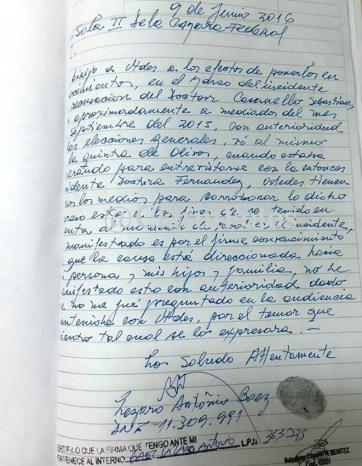 9 de Junio 2016
Sala II de la Camara Federal
Dirijo a Uds a los efectos de ponerlos en
conocimiento, en el Marco del incidente
recusacion del Doctor Casanello Sebastian
aproximadamente a mediados del mes
Septiembre del 2015, con anterioridad
las elecciones Generales, vi al mismo
la quinta de Olivos, cuando estaba
esperando para entrevistarme con la entonces
Presidenta Doctora Fernandez, ustedes tienen
los medios para corroborar lo dicho
esto a los fines de ser tenido en
cuenta al momento de resolver incidente,
manifestado es por el firme convencimiento
que la causa está direccionada hacia
persona y mis hijos y familia, no he
manifestado esto con anterioridad dado
no me fue preguntado en la audiencia
mantenida con Uds, por el temor que
siento tal cual se lo expresara.-
Los Saludo Attentamente
Lazaro Antonio Baez
DNI 11.309.991
CERTIFICO QUE LA FIRMA QUE TENGO ANTE MI
PERTENECE AL INTERNO: BAEZ Lazaro Antonio L.P.U
BENITEZ